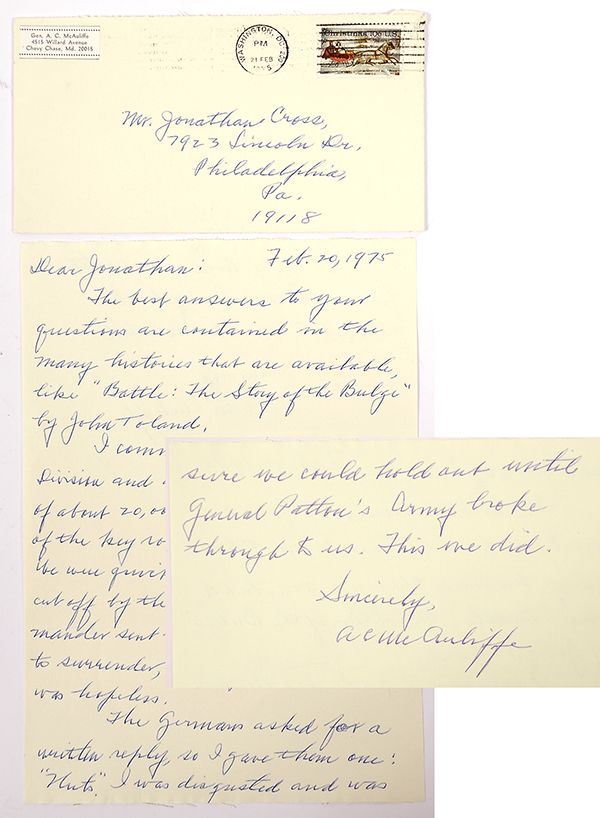 Gen. A. C. McAuliffe
4515 Willard Avenue
Chevy Chase, Md. 20015
WASHINGTON, DC
PM
21 FEB
Christmas 10c U.S.
Mr. Jonathan Cross,
7923 Lincoln Dr,
Philadelphia,
Pa.
19118
Feb. 20, 1975
Dear Jonathan:
The best answers to your
questions are contained in the
many histories that are available,
like "Battle: The Story of the Bulge"
by John Toland.
I comm
Division and
of about 20,00
of the key ro
We were quick
cut off by the
mander sent
to surrender,
was hopeless.
The Germans asked for a
written reply, so I gave them one:
"Nuts". I was disgusted and was
sure we could hold out until
General Patton's Army broke
through to us. This we did.
Sincerely,
A C McAuliffe